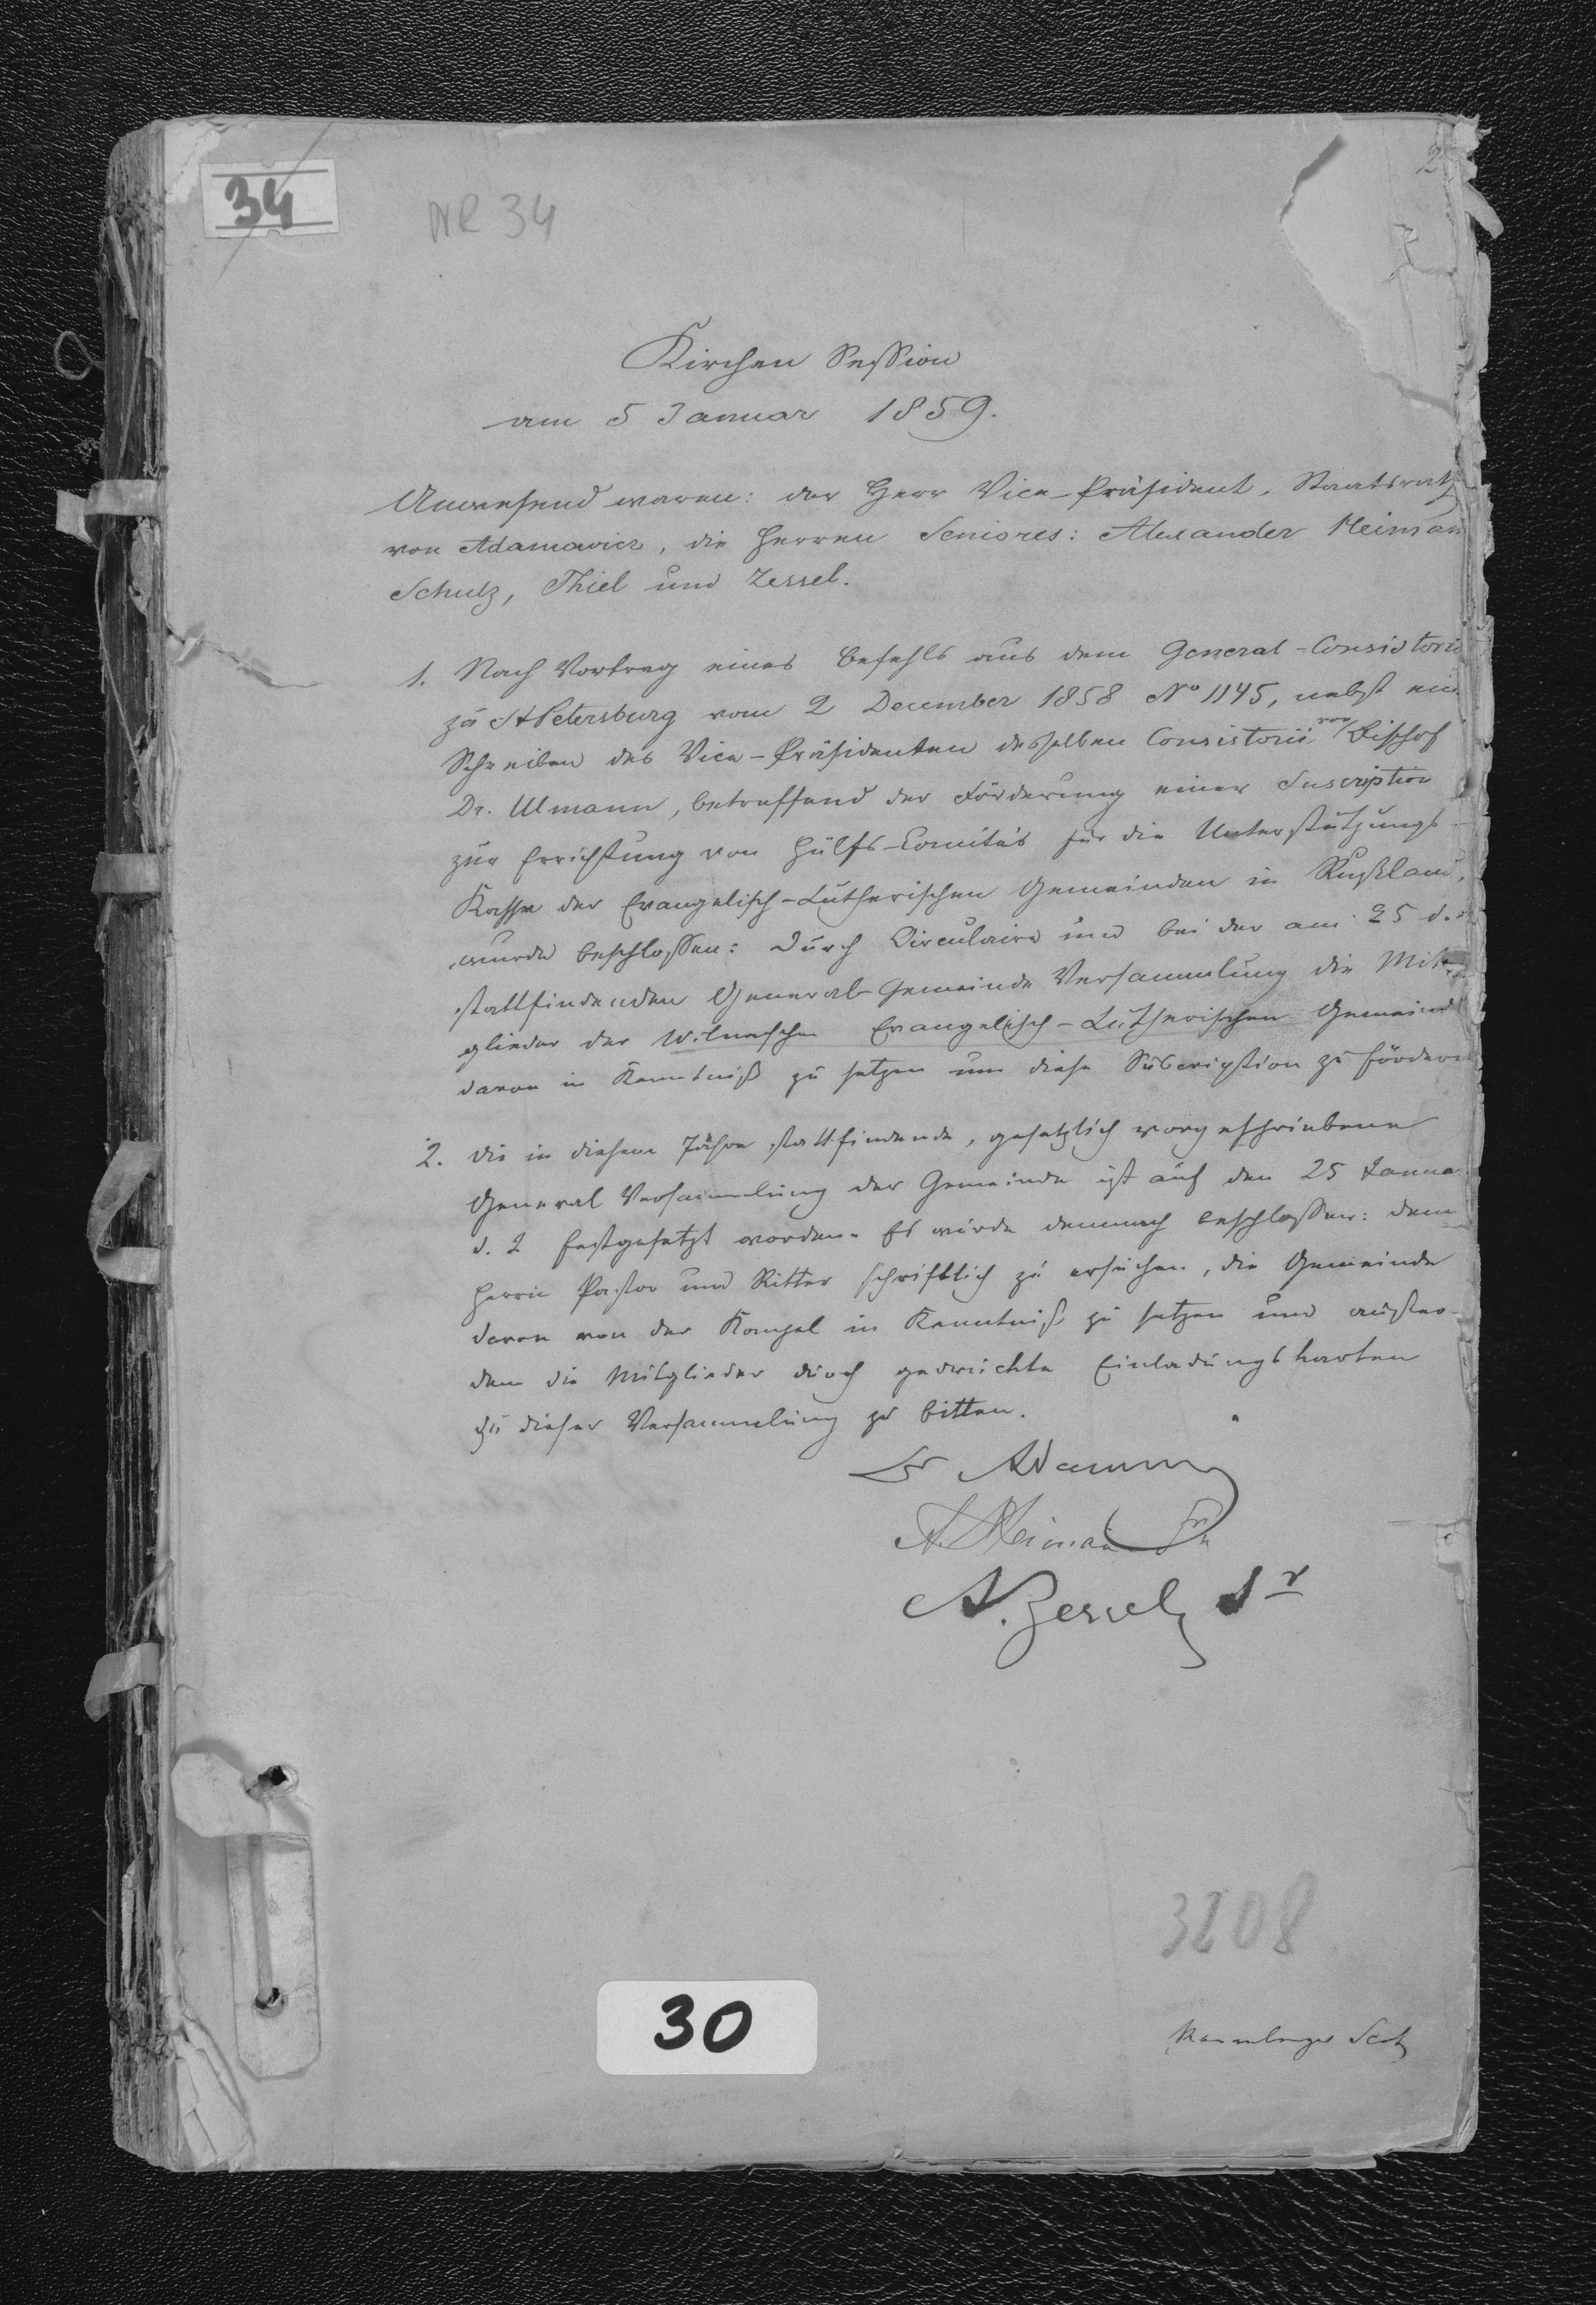 34
NR 34
2
Kirchen Session
am 5 Januar 1859.
Anwesend waren: der Herr Vice-Präsident, Staatsrath
von Adamowicz, die Herren Seniores: Alexander Meiman
Schulz, Thiel und Zessel.
1. Nach Vortrag eines Befehls aus dem General-Consistorio
zu St Petersburg vom 2 December 1858 No 1145, nebst ein
Schreiben des Vice-Präsidenten desselben Consistorii von Bischof
Dr. Ulmann, betreffend der Förderung einer Suscription
zur Errichtung von Hülfs-Comités für die Unterstützungs-
Kasse der Evangelisch-Lutherischen Gemeinden in Rußland,
wurde beschlossen: Durch Circulaire und bei der am 25 d.
stattfindenden General-Gemeinde Versammlung die Mit-
glieder der Wilnaschen Evangelisch-Lutherischen Gemeind
davon in Kenntniß zu setzen um diese Subscription zu fördern
2. Die in diesem Jahre stattfindende, gesetzlich vorgeschriebene
General Versammlung der Gemeinde ist auf den 25 Janua
d. J. festgesetzt worden. Es wurde demnach beschlossen: dem
Herrn Pastor und Ritter schriftlich zu ersuchen, die Gemeinde
davon von der Kanzel in Kenntniß zu setzen und außer-
dem die Mitglieder durch gedruckte Einladungskarten
zu dieser Versammlung zu bitten.
A. Meiman
A. Zessel Sr
3208
30